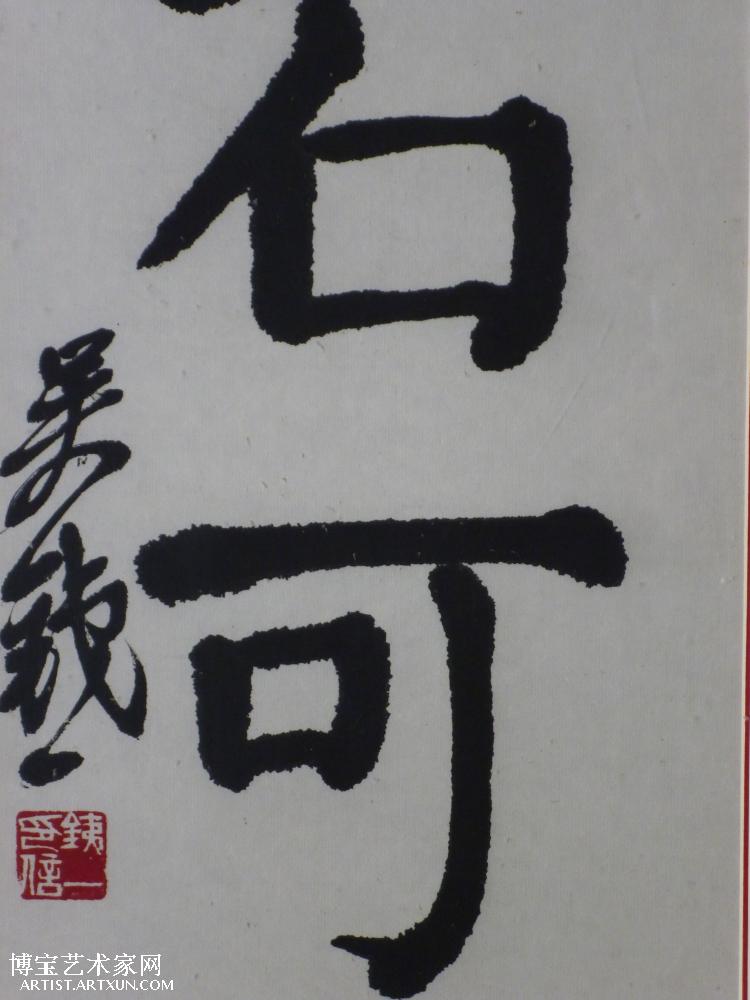 石可
吴鐵一
銕一印信
博宝艺术家网
ARTIST.ARTXUN.COM